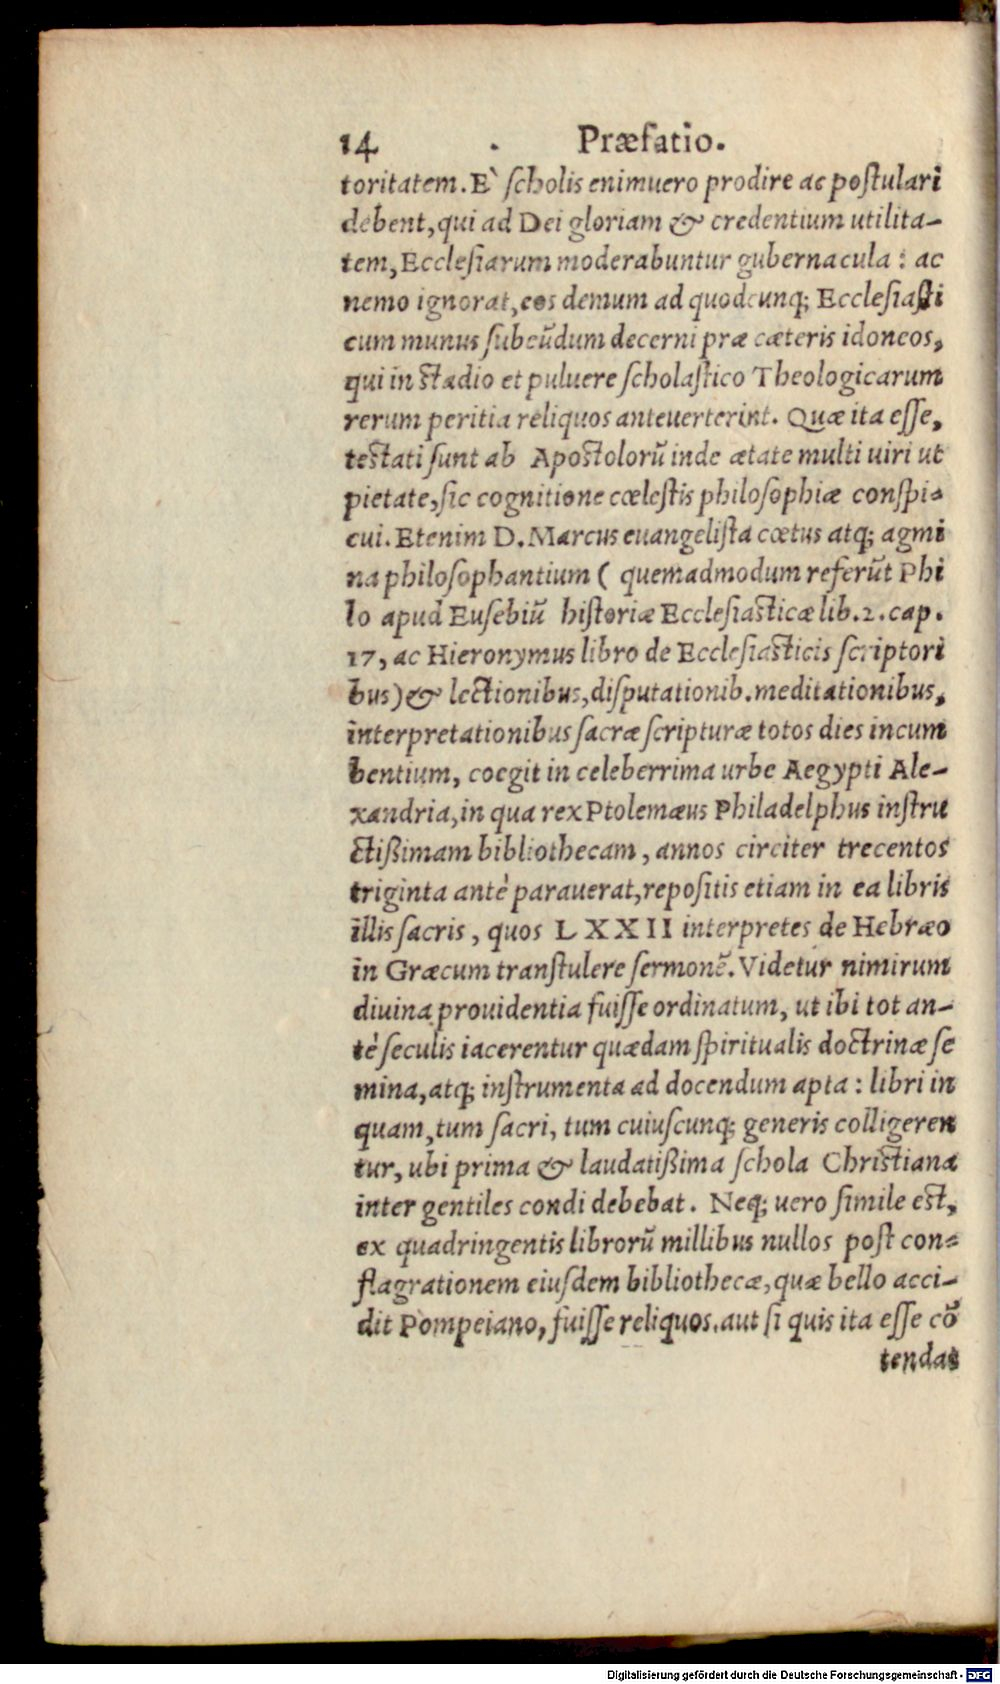 14 Præfatio.
toritatem. E` scholis enimuero prodire ac postulari
debent, qui ad Dei gloriam & credentium utilita-
tem, Ecclesiarum moderabuntur gubernacula: ac
nemo ignorat, eos demum ad quodcunq; Ecclesiasti
cum munus subeūdum decerni præ cæteris idoneos,
qui in stadio et puluere scholastico Theologicarum
rerum peritia reliquos anteuerterint. Quæ ita esse,
testati sunt ab Apostolorū inde ætate multi uiri ut
pietate, sic cognitione cœlestis philosophiæ conspi-
cui. Etenim D. Marcus euangelista cœtus atq; agmi
na philosophantium ( quemadmodum referūt Phi
lo apud Eusebiū historiæ Ecclesiasticæ lib. 2. cap.
17, ac Hieronymus libro de Ecclesiasticis scriptori
bus) & lectionibus, disputationib. meditationibus,
interpretationibus sacræ scripturæ totos dies incum
bentium, coegit in celeberrima urbe Aegypti Ale-
xandria, in qua rex Ptolemæus Philadelphus instru
ctißimam bibliothecam, annos circiter trecentos
triginta antè parauerat, repositis etiam in ea libris
illis sacris, quos LXXII interpretes de Hebræo
in Græcum transtulere sermonē. Videtur nimirum
diuina prouidentia fuisse ordinatum, ut ibi tot an-
tè seculis iacerentur quædam spiritualis doctrinæ se
mina, atq; instrumenta ad docendum apta: libri in
quam, tum sacri, tum cuiuscunq; generis colligeren
tur, ubi prima & laudatißima schola Christiana
inter gentiles condi debebat. Neq; uero simile est,
ex quadringentis librorū millibus nullos post con-
flagrationem eiusdem bibliothecæ, quæ bello acci-
dit Pompeiano, fuisse reliquos. aut si quis ita esse cō
tendat
Digitalisierung gefördert durch die Deutsche Forschungsgemeinschaft - DFG